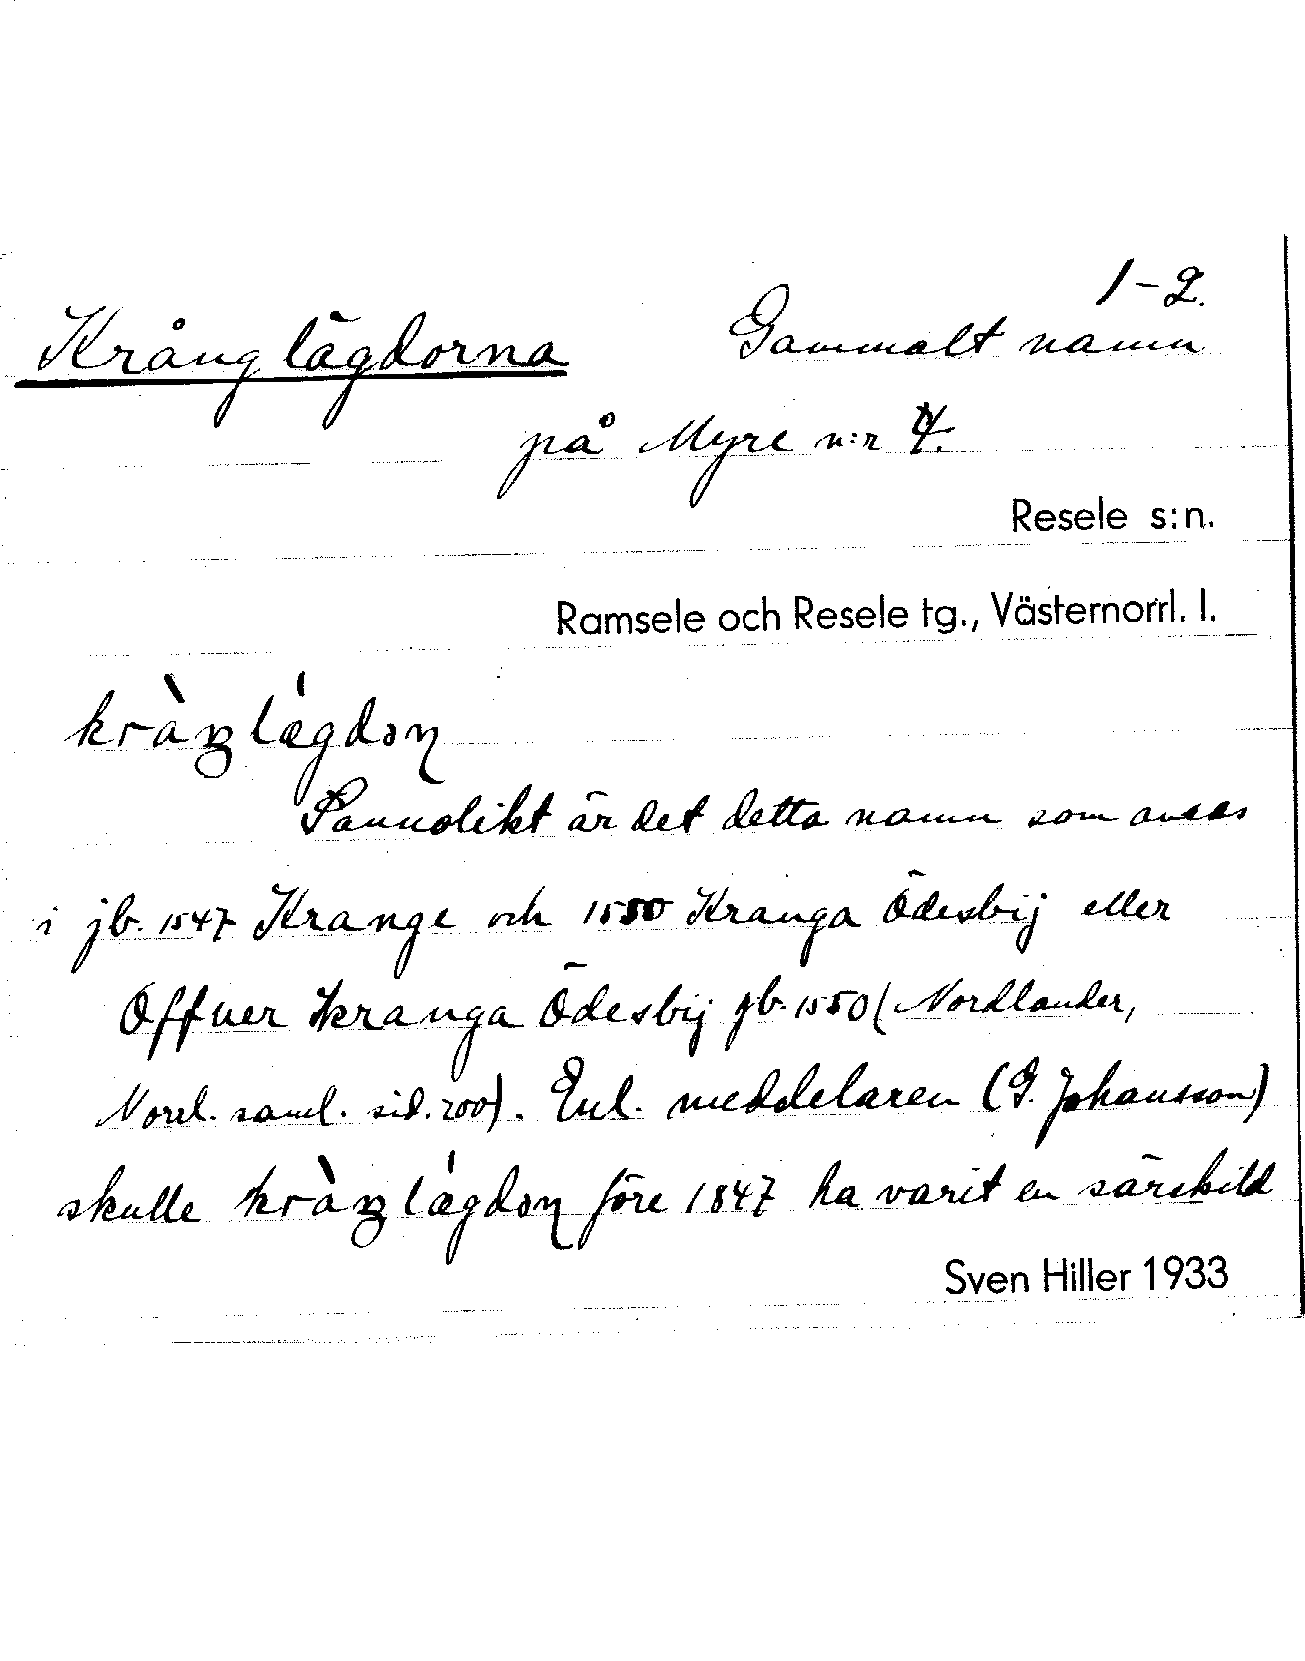 1–2.
Krånglägdorna Gammalt namn
på Myre n:r 4.
Resele s:n.
Ramsele och Resele tg., Västernorrl. l.
Sannolikt är det detta namn som avses
i jb. 1547 Krange och 1550 Kranga Ödesbij eller
Offuer kranga Ödesbij jb. 1550 (Nordlander,
Norrl. saml. sid. 200). Enl. meddelaren (G. Johansson)
skulle före 1847 ha varit en särskild
Sven Hiller 1933